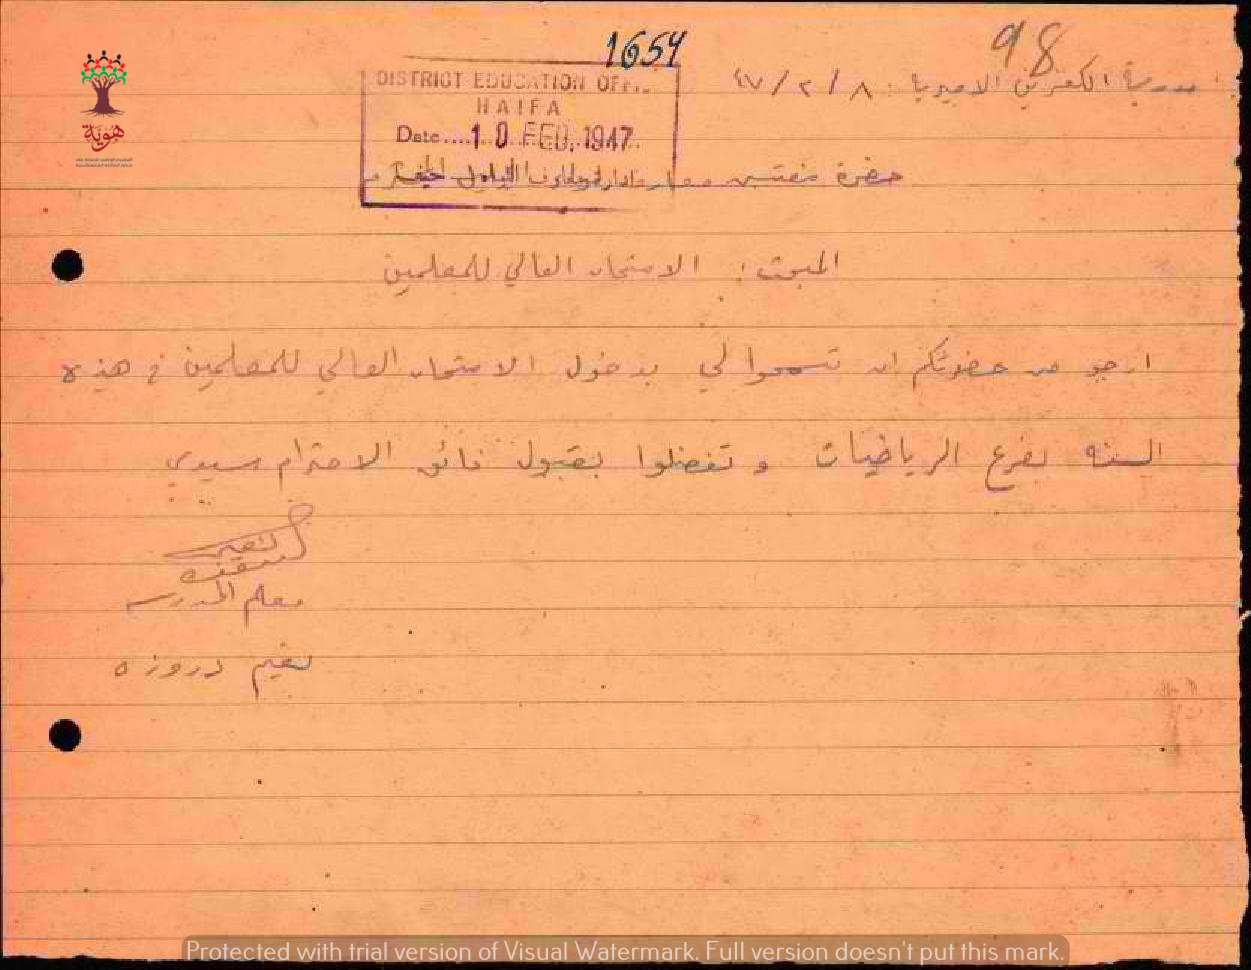 98
1654
مدرسة الكفرين الاميرية : ٨ / ٢ / ٤٧
DISTRICT EDUCATION OFF
HAIFA
Date....10 FEB. 1947
حضرة مفتش معارف لواء
المبحث : الامتحان العالي للمعلمين
ارجو من حضرتكم ان تسمحوا لي بدخول الامتحان العالي للمعلمين في هذه
السنه بفرع الرياضيات وتفضلوا بقبول فائق الاحترام سيدي
معلم المدرسه
نعيم دروزه
هوية
Protected with trial version of Visual Watermark. Full version doesn't put this mark.